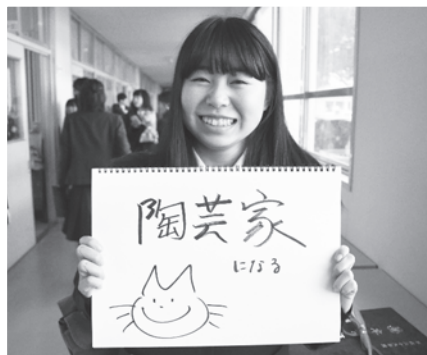 陶芸家
になる